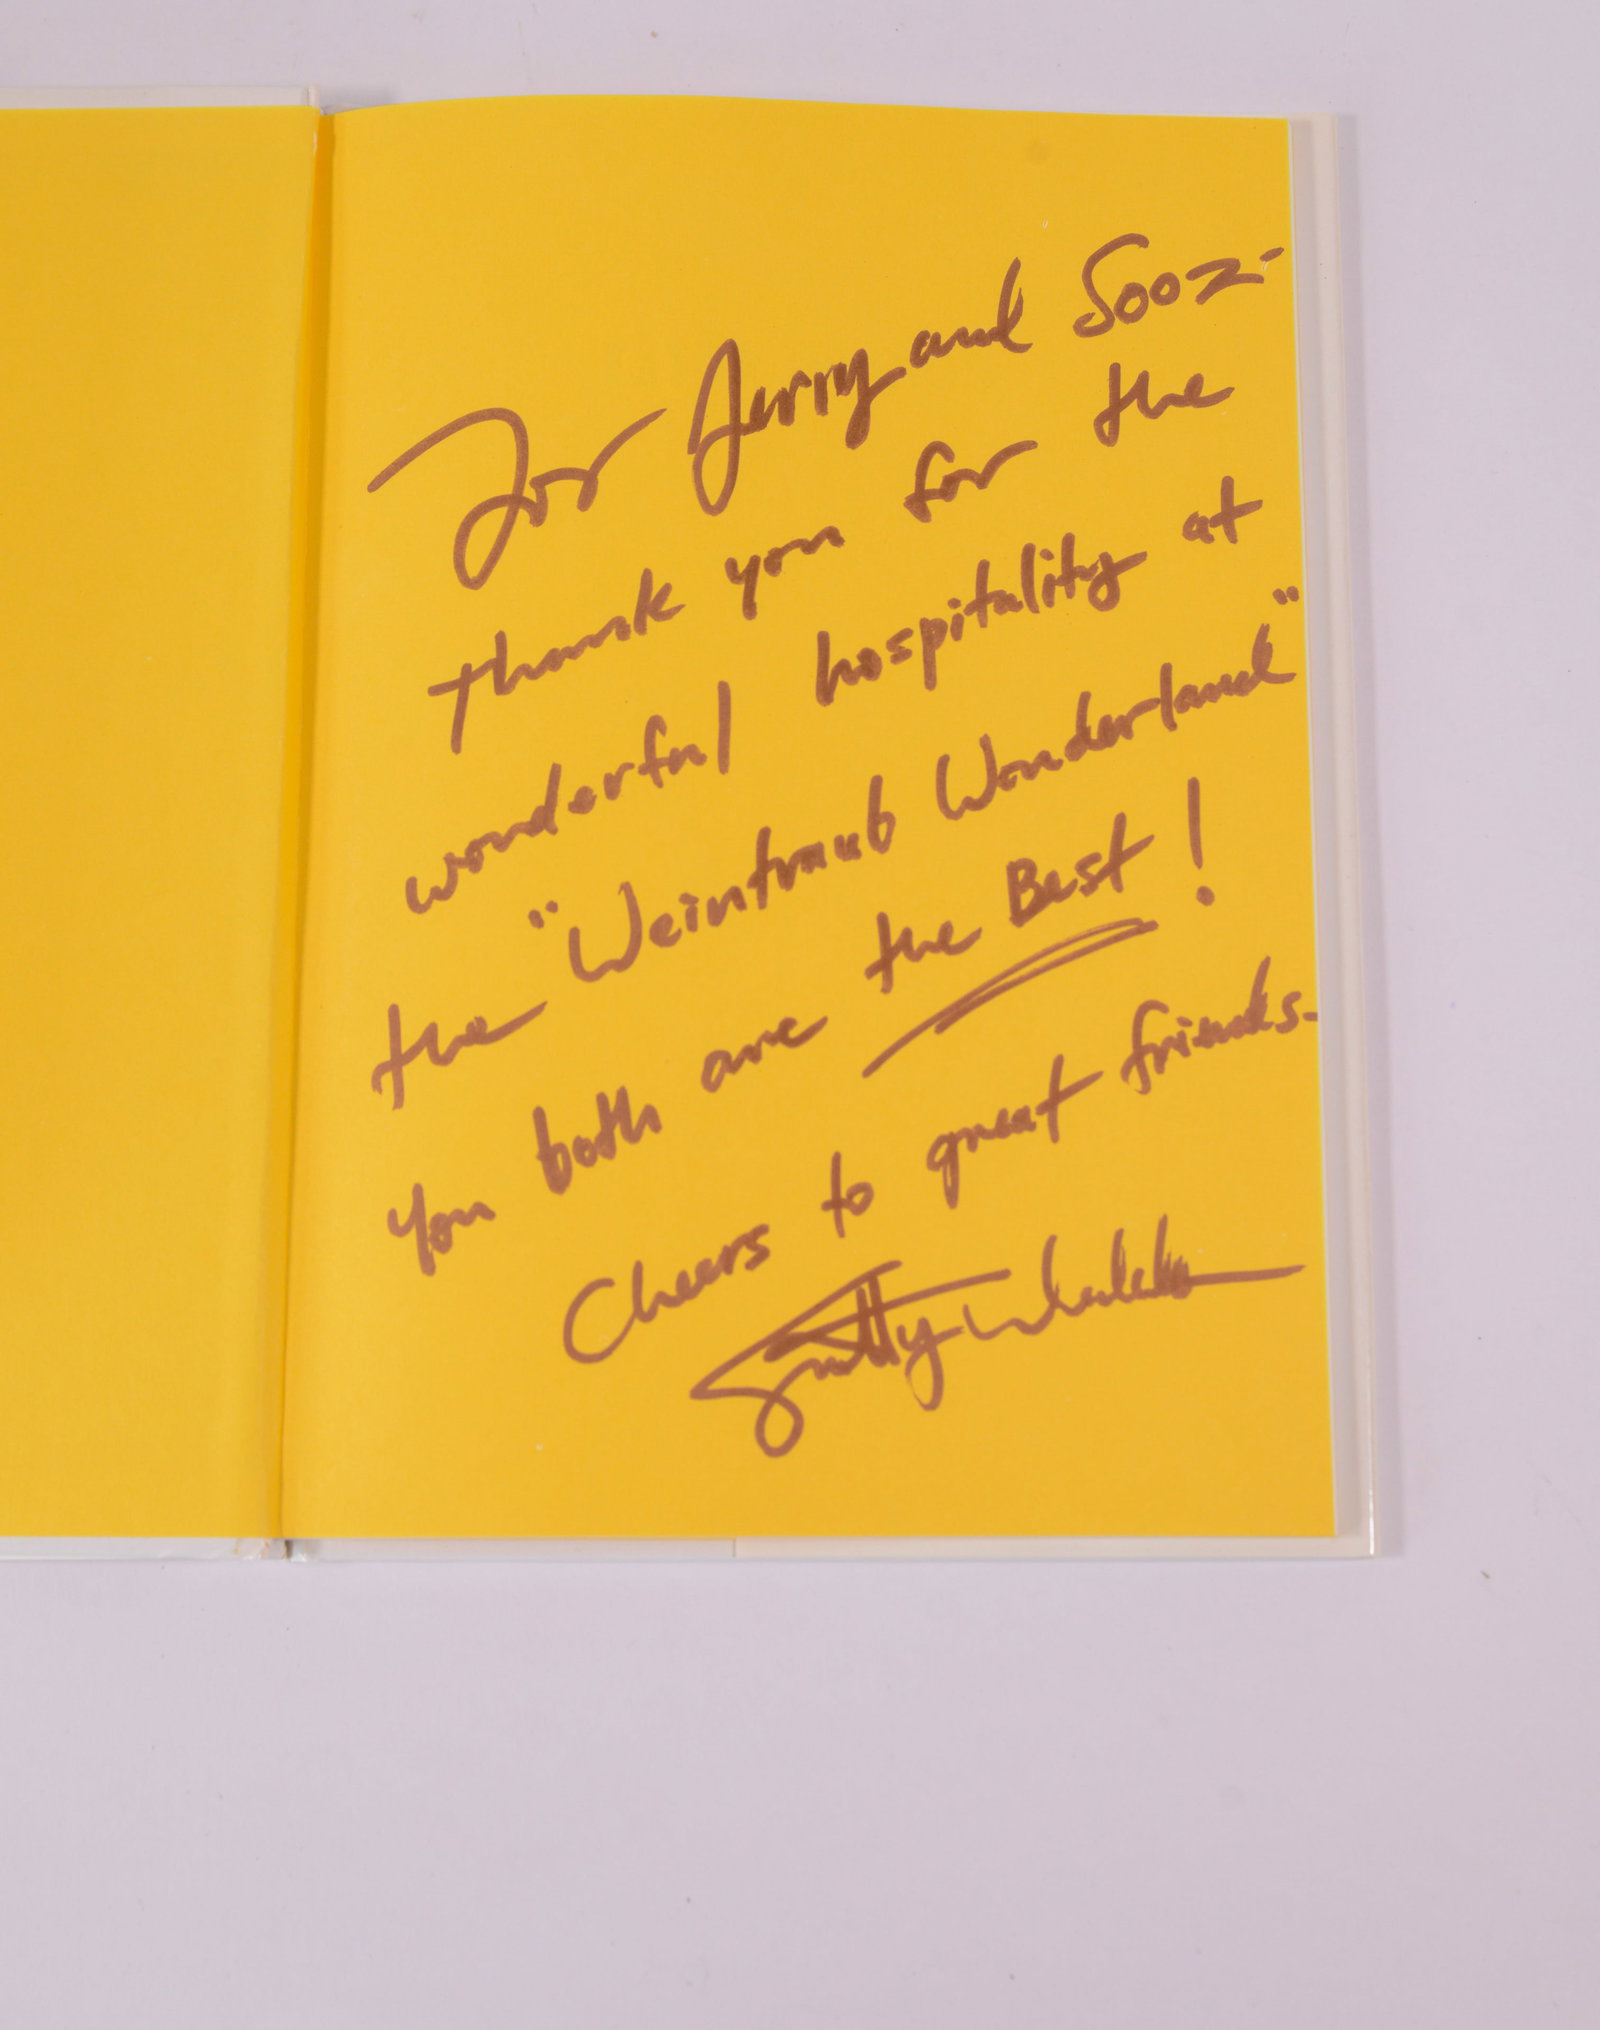 For Jerry and Sooz-
thank you for the
wonderful hospitality at
the "Weintraub Wonderland"
You both are the Best!
Cheers to great friends-